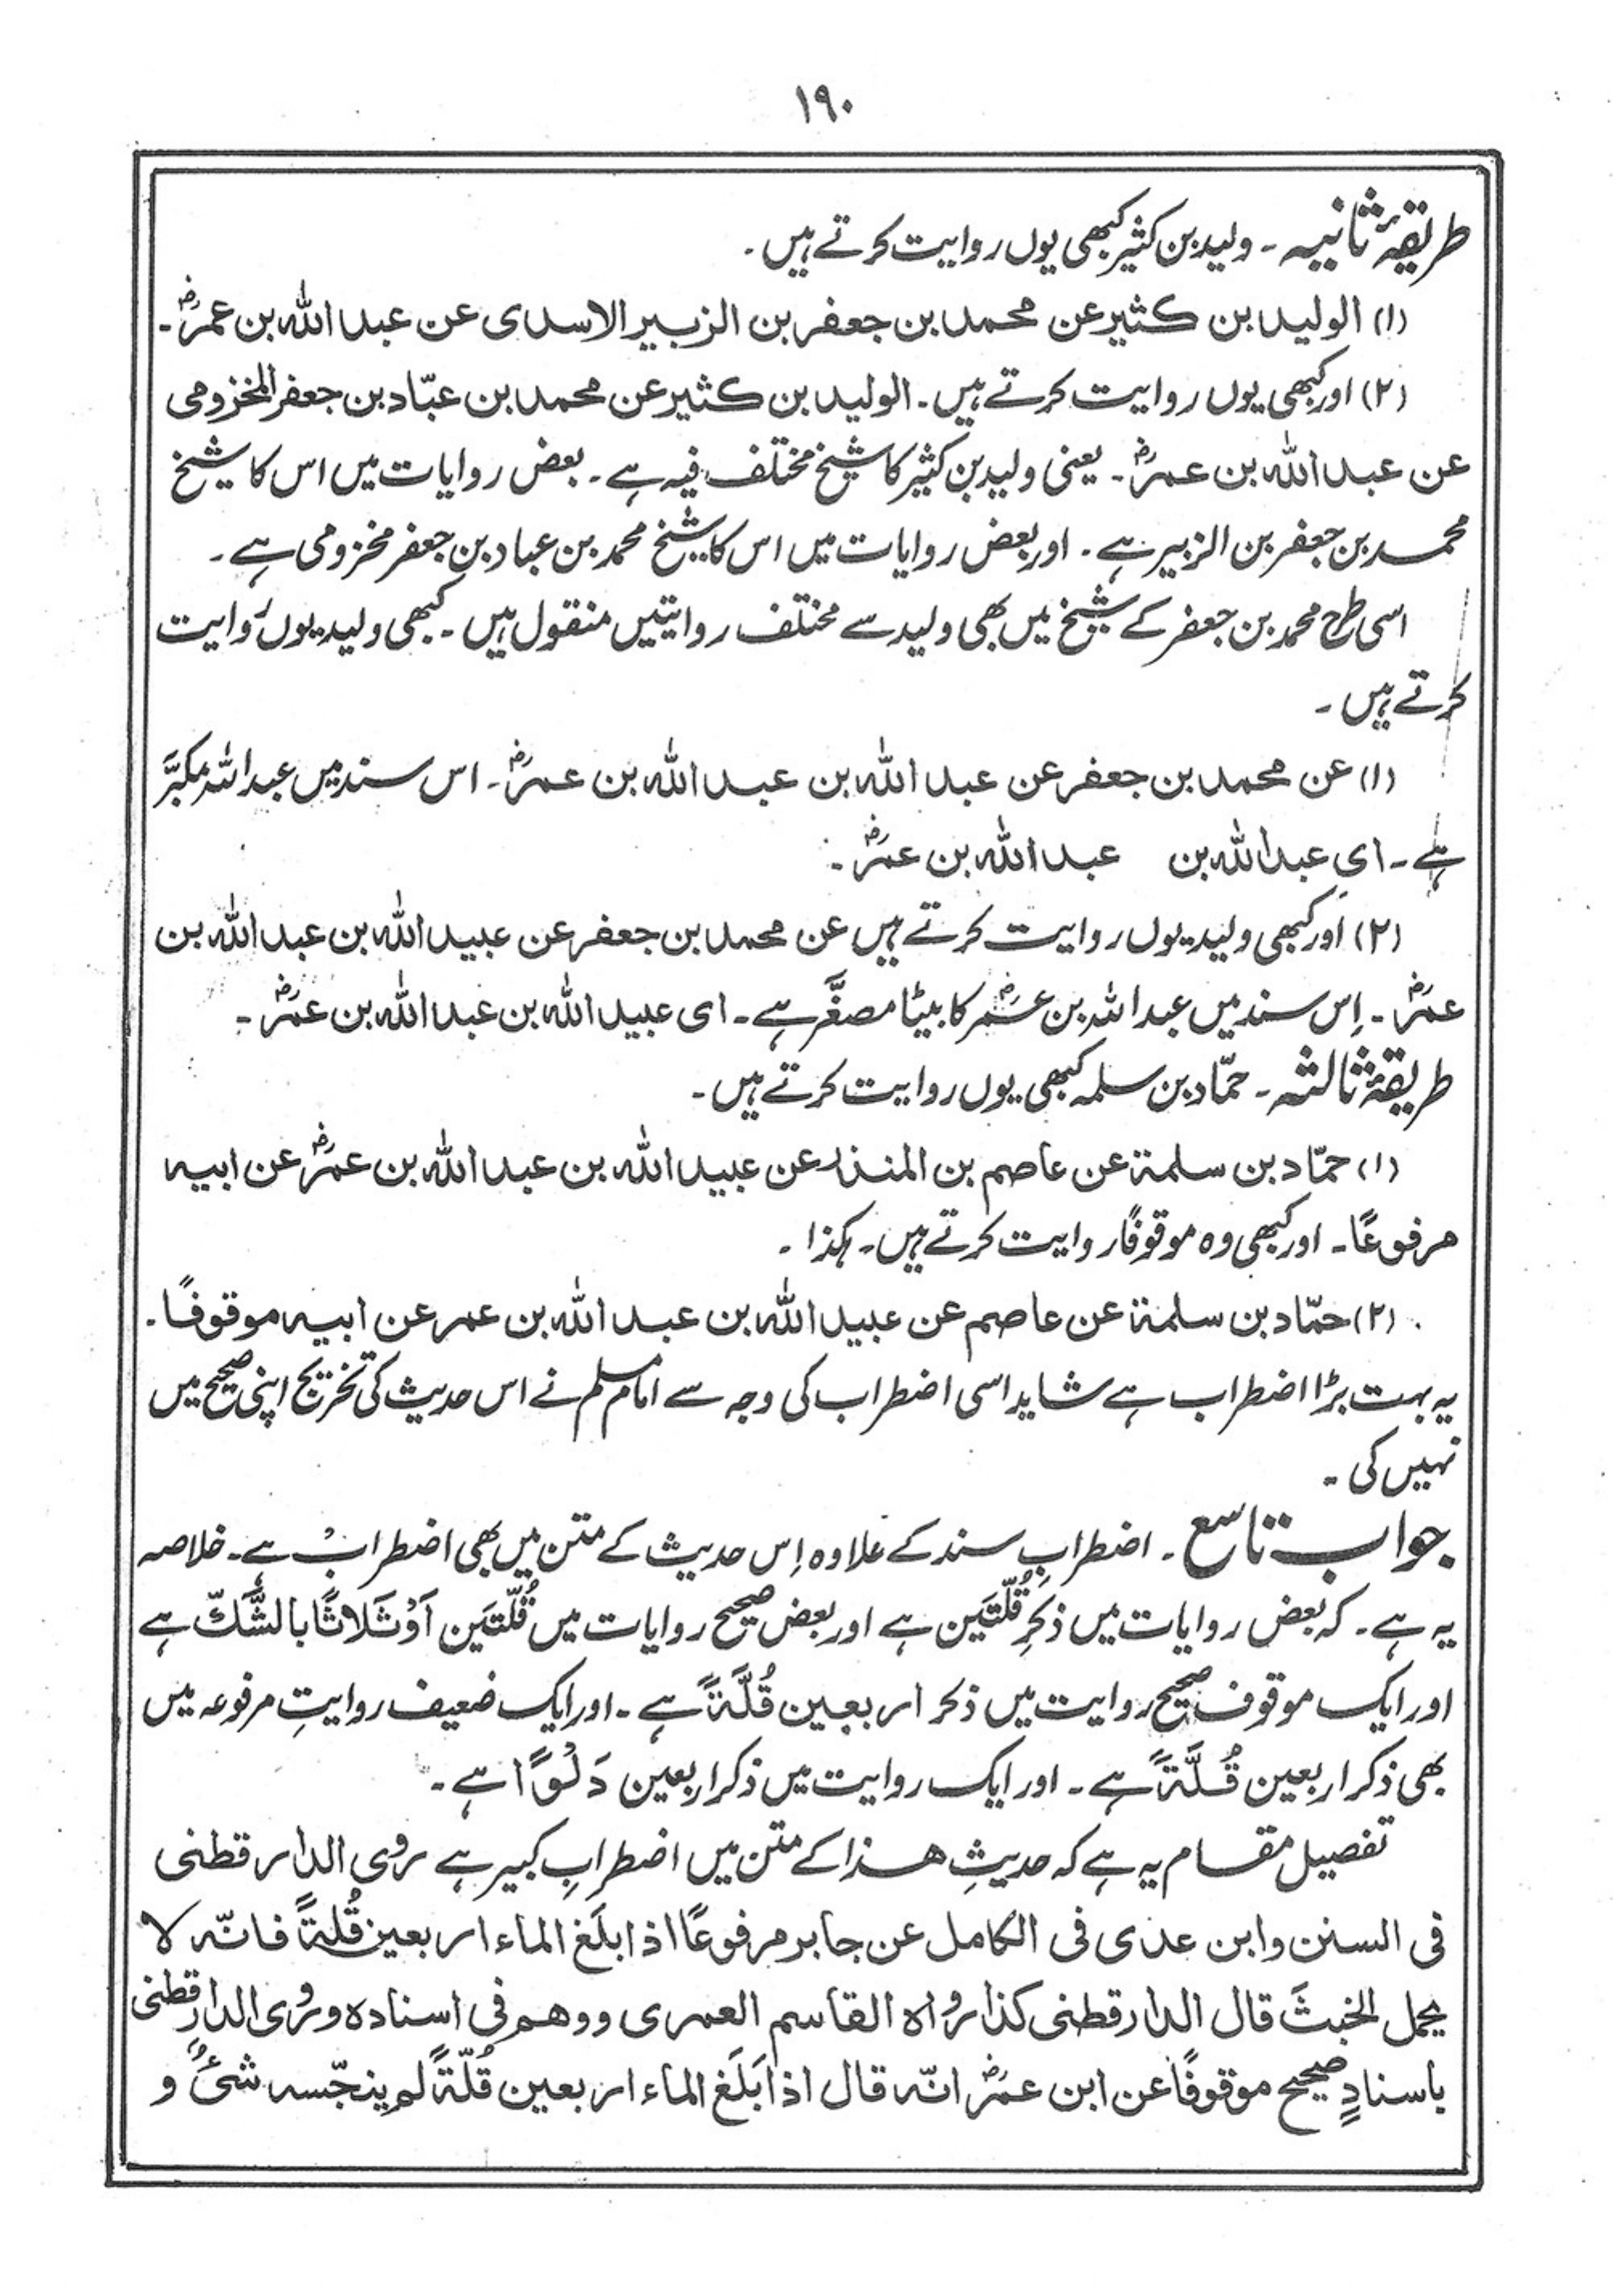 ١٩٠
طریقۂ ثانیہ ۔ ولید بن کثیر کبھی یوں روایت کرتے ہیں ۔
(۱) الولید بن کثیر عن محمد بن جعفر بن الزبیر الاسدی عن عبد اللہ بن عمرؓ ۔
(۲) اور کبھی یوں روایت کرتے ہیں ۔ الولید بن کثیر عن محمد بن عبّاد بن جعفر المخزومی
عن عبد اللہ بن عمرؓ ۔ یعنی ولید بن کثیر کا شیخ مختلف فیہ ہے ۔ بعض روایات میں اس کا شیخ
محمد بن جعفر بن الزبیر ہے ۔ اور بعض روایات میں اس کا شیخ محمد بن عباد بن جعفر مخزومی ہے ۔
اسی طرح محمد بن جعفر کے شیخ میں بھی ولید سے مختلف روایتیں منقول ہیں ۔ کبھی ولید یوں روایت
کرتے ہیں ۔
(۱) عن محمد بن جعفر عن عبد اللہ بن عبد اللہ بن عمرؓ ۔ اس سند میں عبد اللہ مکبَّر
ہے ۔ ای عبد اللہ بن عبد اللہ بن عمرؓ ۔
(۲) اور کبھی ولید یوں روایت کرتے ہیں عن محمد بن جعفر عن عبید اللہ بن عبد اللہ بن
عمرؓ ۔ اِس سند میں عبد اللہ بن عمرؓ کا بیٹا مصغَّر ہے ۔ ای عبید اللہ بن عبد اللہ بن عمرؓ ۔
طریقۂ ثالثہ ۔ حمّاد بن سلمہ کبھی یوں روایت کرتے ہیں ۔
(۱) حمّاد بن سلمۃ عن عاصم بن المنذر عن عبید اللہ بن عبد اللہ بن عمرؓ عن ابیہ
مرفوعًا ۔ اور کبھی وہ موقوفًا روایت کرتے ہیں ۔ ہکذا ۔
(۲) حمّاد بن سلمۃ عن عاصم عن عبید اللہ بن عبد اللہ بن عمر عن ابیہ موقوفًا ۔
یہ بہت بڑا اضطراب ہے شاید اسی اضطراب کی وجہ سے امام مسلم نے اس حدیث کی تخریج اپنی صحیح میں
نہیں کی ۔
جواب تاسع ۔ اضطرابِ سند کے علاوہ اِس حدیث کے متن میں بھی اضطراب ہے ۔ خلاصہ
یہ ہے ۔ کہ بعض روایات میں ذکرِ قُلّتَین ہے اور بعض صحیح روایات میں قُلّتَین اَوْ ثَلاثًا بالشَّکّ ہے
اور ایک موقوف صحیح روایت میں ذکر اربعین قُلَّۃً ہے ۔ اور ایک ضعیف روایتِ مرفوعہ میں
بھی ذکر اربعین قُلَّۃً ہے ۔ اور ایک روایت میں ذکر اربعین دَلْوًا ہے ۔
تفصیل مقام یہ ہے کہ حدیثِ ھذا کے متن میں اضطرابِ کبیر ہے روی الدارقطنی
فی السنن وابن عدی فی الکامل عن جابر مرفوعًا اذا بلَغ الماء اربعین قُلۃً فانّہ لا
یحمل الخبثَ قال الدارقطنی کذا رواہ القاسم العمری ووھم فی اسنادہ وروی الدارقطنی
باسنادٍ صحیح موقوفًا عن ابن عمرؓ انّہ قال اذا بَلَغ الماء اربعین قُلّۃً لم ینجّسہ شئٌ و